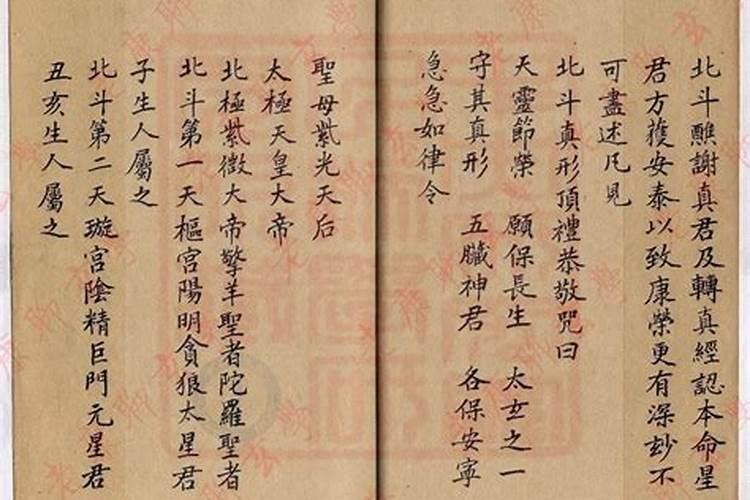 北斗醮謝真君及轉真經認本命星
君方獲安泰以致康榮更有深玅不
可盡述凡見
北斗真形頂禮恭敬咒曰
天靈節榮 願保長生 太玄之一
守其真形 五臟神君 各保安寧
急急如律令
聖母紫光天后
太極天皇大帝
北極紫微大帝擎羊聖者陀羅聖者
北斗第一天樞宮陽明貪狼太星君
子生人屬之
北斗第二天璇宮陰精巨門元星君
丑亥生人屬之